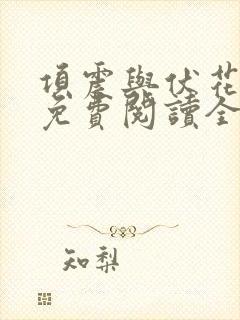 項震與伏花
免費閱讀全
知梨